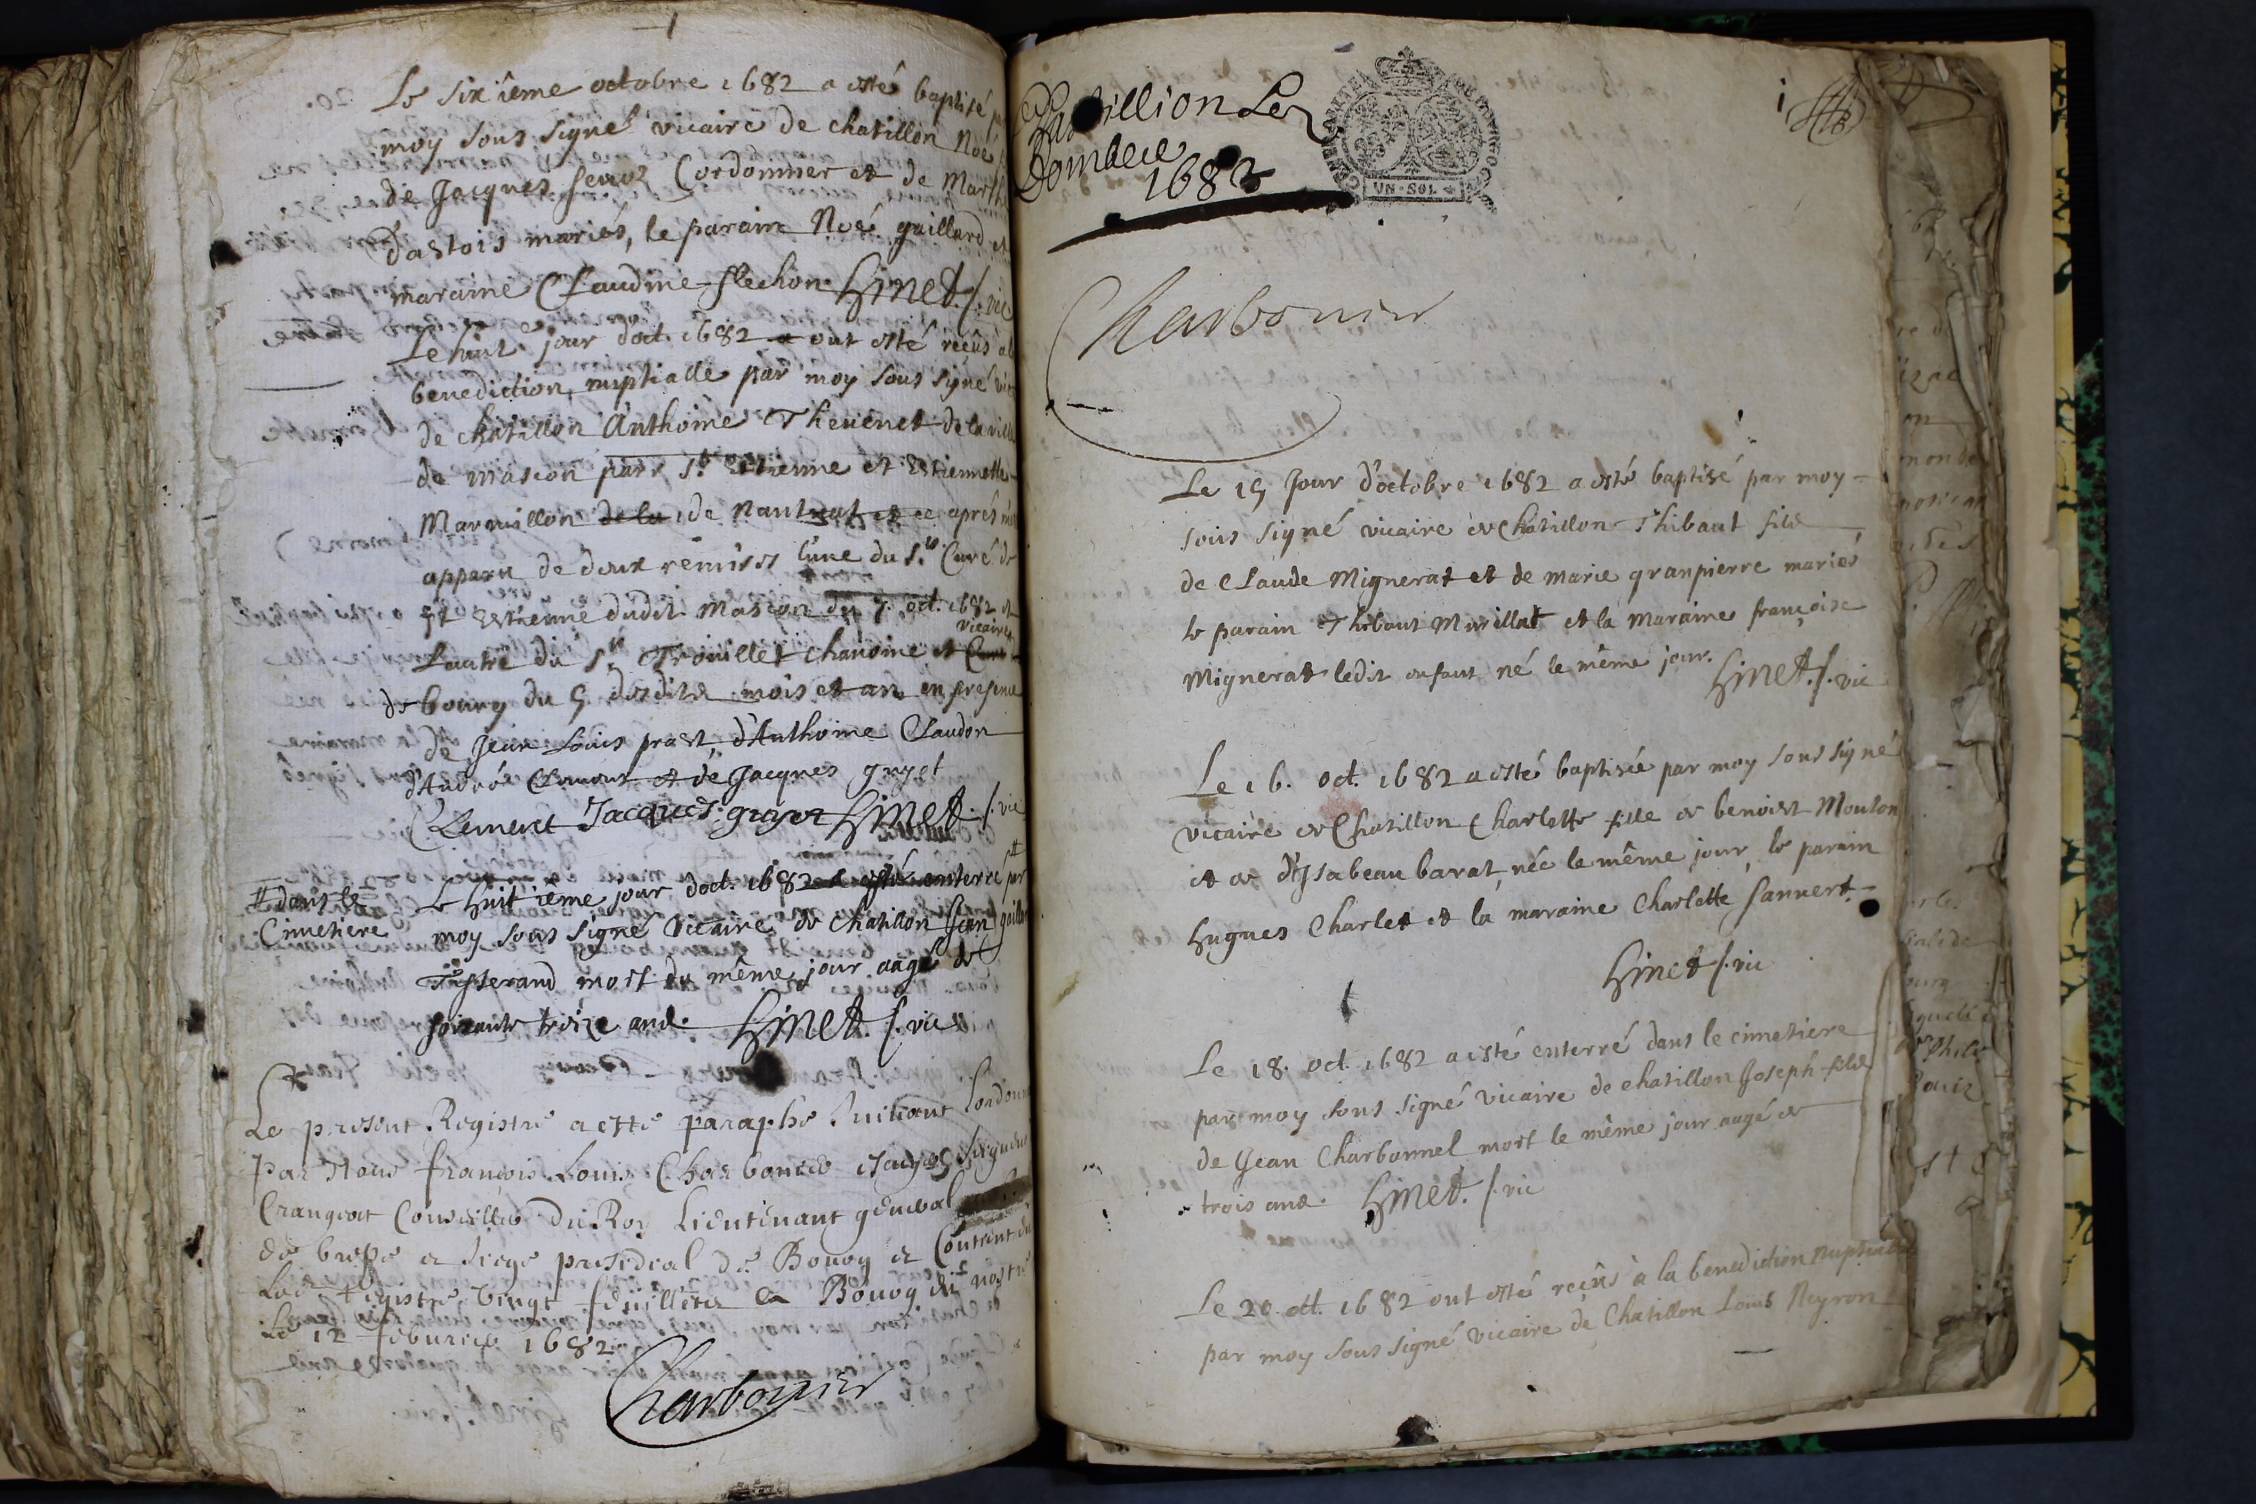 Le sixième octobre 1682 a esté baptisé
moy sous signé vicaire de chatillon Noé
de Jacques Cordonnier et de Marth
Dastois mariés, le parain Noé gaillard et
maraine Claudine flechon Hinet. s. vic
Le huit jour d'oct. 1682 a ont esté reçûs a la
benediction nuptialle par moy sous signé vic
de chatillon Anthoine Thevenet de la ville
de mascon parr. st. Estienne et Estiennette
Marmillon de la de Nantuat et ce aprés m'est
apparu de deux remises l'une du sr. Curé de
st Estienne dudit Mascon du 7. oct. 1682 et
vicaire
L'autre du sr. Trouillet chanoine et Curé
de bourg du 5 desdits mois et an en presence
de Jean Louis prost d'Anthoine Claudon
d'André Clemont et de Jacques guyot
Clement Jacques guyot Hinet. s. vic
# dans le
Cimetiere
Le huitième jour d'oct. 1682 a esté enterré # par
moy sous signé vicaire de chatillon Jean
Tisserand mort du même jour aagé de
soixante treize ans. Hinet. s. vic
Le present Registre a esté paraphé suivant Lordonn
Par Nous françois Louis Charbonnier Seigneur
Crangeat Conseiller Du Roy Lieutenant general
de bresse et siege presidial de Bourg et Contient led
Led Registre vingt feüilletz a Bourg
Le 12 feburier 1682
Charbonnier
Chastillion Les
Dombere
1682
UN·SOL
i
Charbonier
Le 15 Jour d'octobre 1682 a esté baptisé par moy
sous signé vicaire de Chatillon Thibaut fils
de Claude Mignerat et de marie granpierre mariés
le parain Thibaut Murillat et la Maraine françoise
Mignerat ledit enfant né le même jour. Hinet. s. vic
Le 16. oct. 1682 a esté baptisée par moy sous signé
vicaire de Chatillon Charlette fille de benoist Mouton
et de d'Isabeau barat, née le même jour, le parain
Hugues Charlet et la maraine Charlette sannert.
Hinet s. vic
Le 18. oct. 1682 a esté enterré dans le cimetiere
par moy sous signé vicaire de chatillon Joseph fils
de Jean Charbonnel mort le même jour aagé de
trois ans. Hinet. s. vic
Le 20. oct. 1682 ont esté reçûs à la benediction nuptialle
par moy sous signé vicaire de Chatillon Louis Neyron